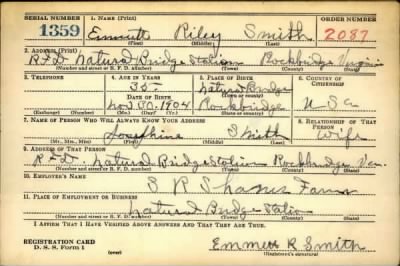 SERIAL NUMBER 1. NAME (Print) ORDER NUMBER
1359 Emmett Riley Smith 2087
(First) (Middle) (Last)
2. ADDRESS (Print)
R F D Natural Bridge Station Rockbridge
(Number and street or R. F. D. number) (Town) (County) (State)
3. TELEPHONE 4. AGE IN YEARS 5. PLACE OF BIRTH 6. COUNTRY OF CITIZENSHIP
35 Natural Bridge
DATE OF BIRTH (Town or county)
Nov. 30. 1904 Rockbridge U S a
(Exchange) (Number) (Mo.) (Day) (Yr.) (State or country)
7. NAME OF PERSON WHO WILL ALWAYS KNOW YOUR ADDRESS 8. RELATIONSHIP OF THAT PERSON
Josephine Smith Wife
(Mr., Mrs., Miss) (First) (Middle) (Last)
9. ADDRESS OF THAT PERSON
R F D. Natural Bridge Station Rockbridge
(Number and street or R. F. D. number) (Town) (County) (State)
10. EMPLOYER'S NAME
S R Farm
11. PLACE OF EMPLOYMENT OR BUSINESS
Natural Bridge Station
(Number and street or R. F. D. number) (Town) (County) (State)
I AFFIRM THAT I HAVE VERIFIED ABOVE ANSWERS AND THAT THEY ARE TRUE.
REGISTRATION CARD
D. S. S. Form 1 (over) Emmett R Smith
(Registrant's signature)